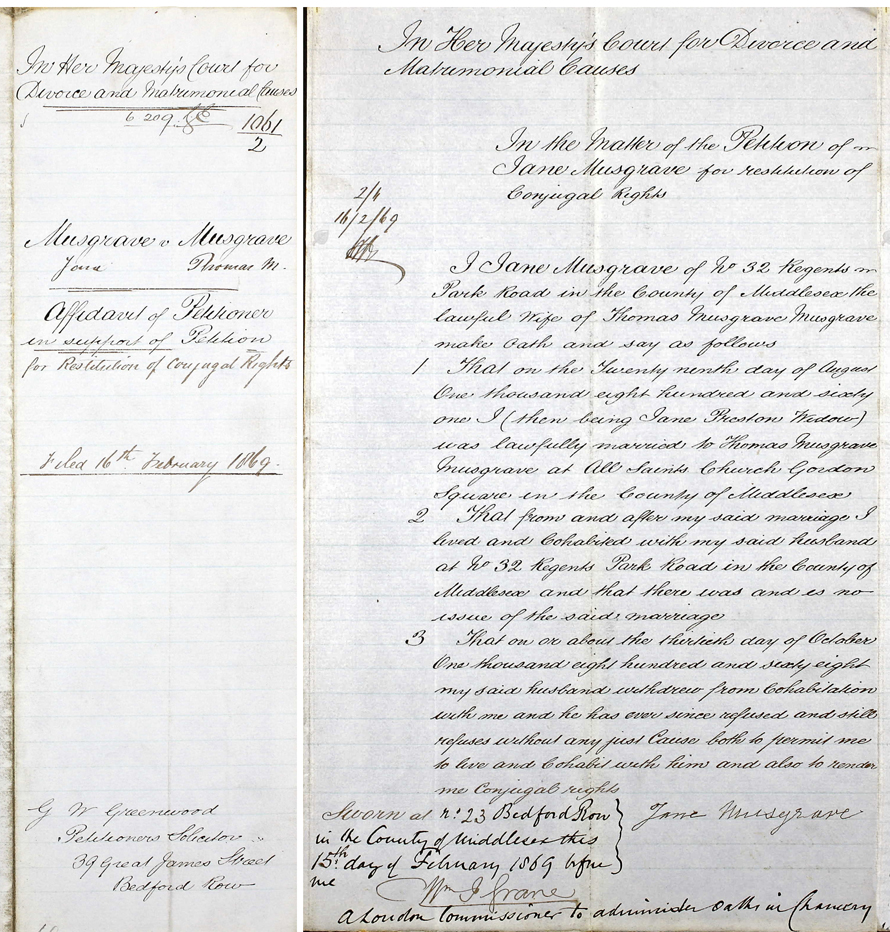 In Her Majesty's Court for
Divorce and Matrimonial Causes
6209
1061
2
Musgrave v Musgrave
Jane Thomas M.
Affidavit of Petitioner
in support of Petition
for Restitution of Conjugal Rights
Filed 16th February 1869.
G W Greenwood
Petitioners Solicitor
39 Great James Street
Bedford Row
In Her Majesty's Court for Divorce and
Matrimonial Causes
In the Matter of the Petition of
Jane Musgrave for restitution of
Conjugal Rights
16/2/69
I Jane Musgrave of No 32 Regents
Park Road in the County of Middlesex the
lawful Wife of Thomas Musgrave Musgrave
make Oath and say as follows
1 That on the Twenty ninth day of August
One thousand eight hundred and sixty
one I (then being Jane Preston Widow)
was lawfully married to Thomas Musgrave
Musgrave at All Saints Church Gordon
Square in the County of Middlesex
2 That from and after my said marriage I
lived and Cohabited with my said husband
at No 32 Regents Park Road in the County of
Middlesex and that there was and is no
issue of the said marriage
3 That on or about the thirtieth day of October
One thousand eight hundred and sixty eight
my said husband withdrew from Cohabitation
with me and he has ever since refused and still
refuses without any just Cause both to permit me
to live and Cohabit with him and also to render
me Conjugal rights
Sworn at No. 23 Bedford Row
in the County of Middlesex this
15th day of February 1869 before
me
Jane Musgrave
Wm J Grane
A London Commissioner to administer Oaths in Chancery